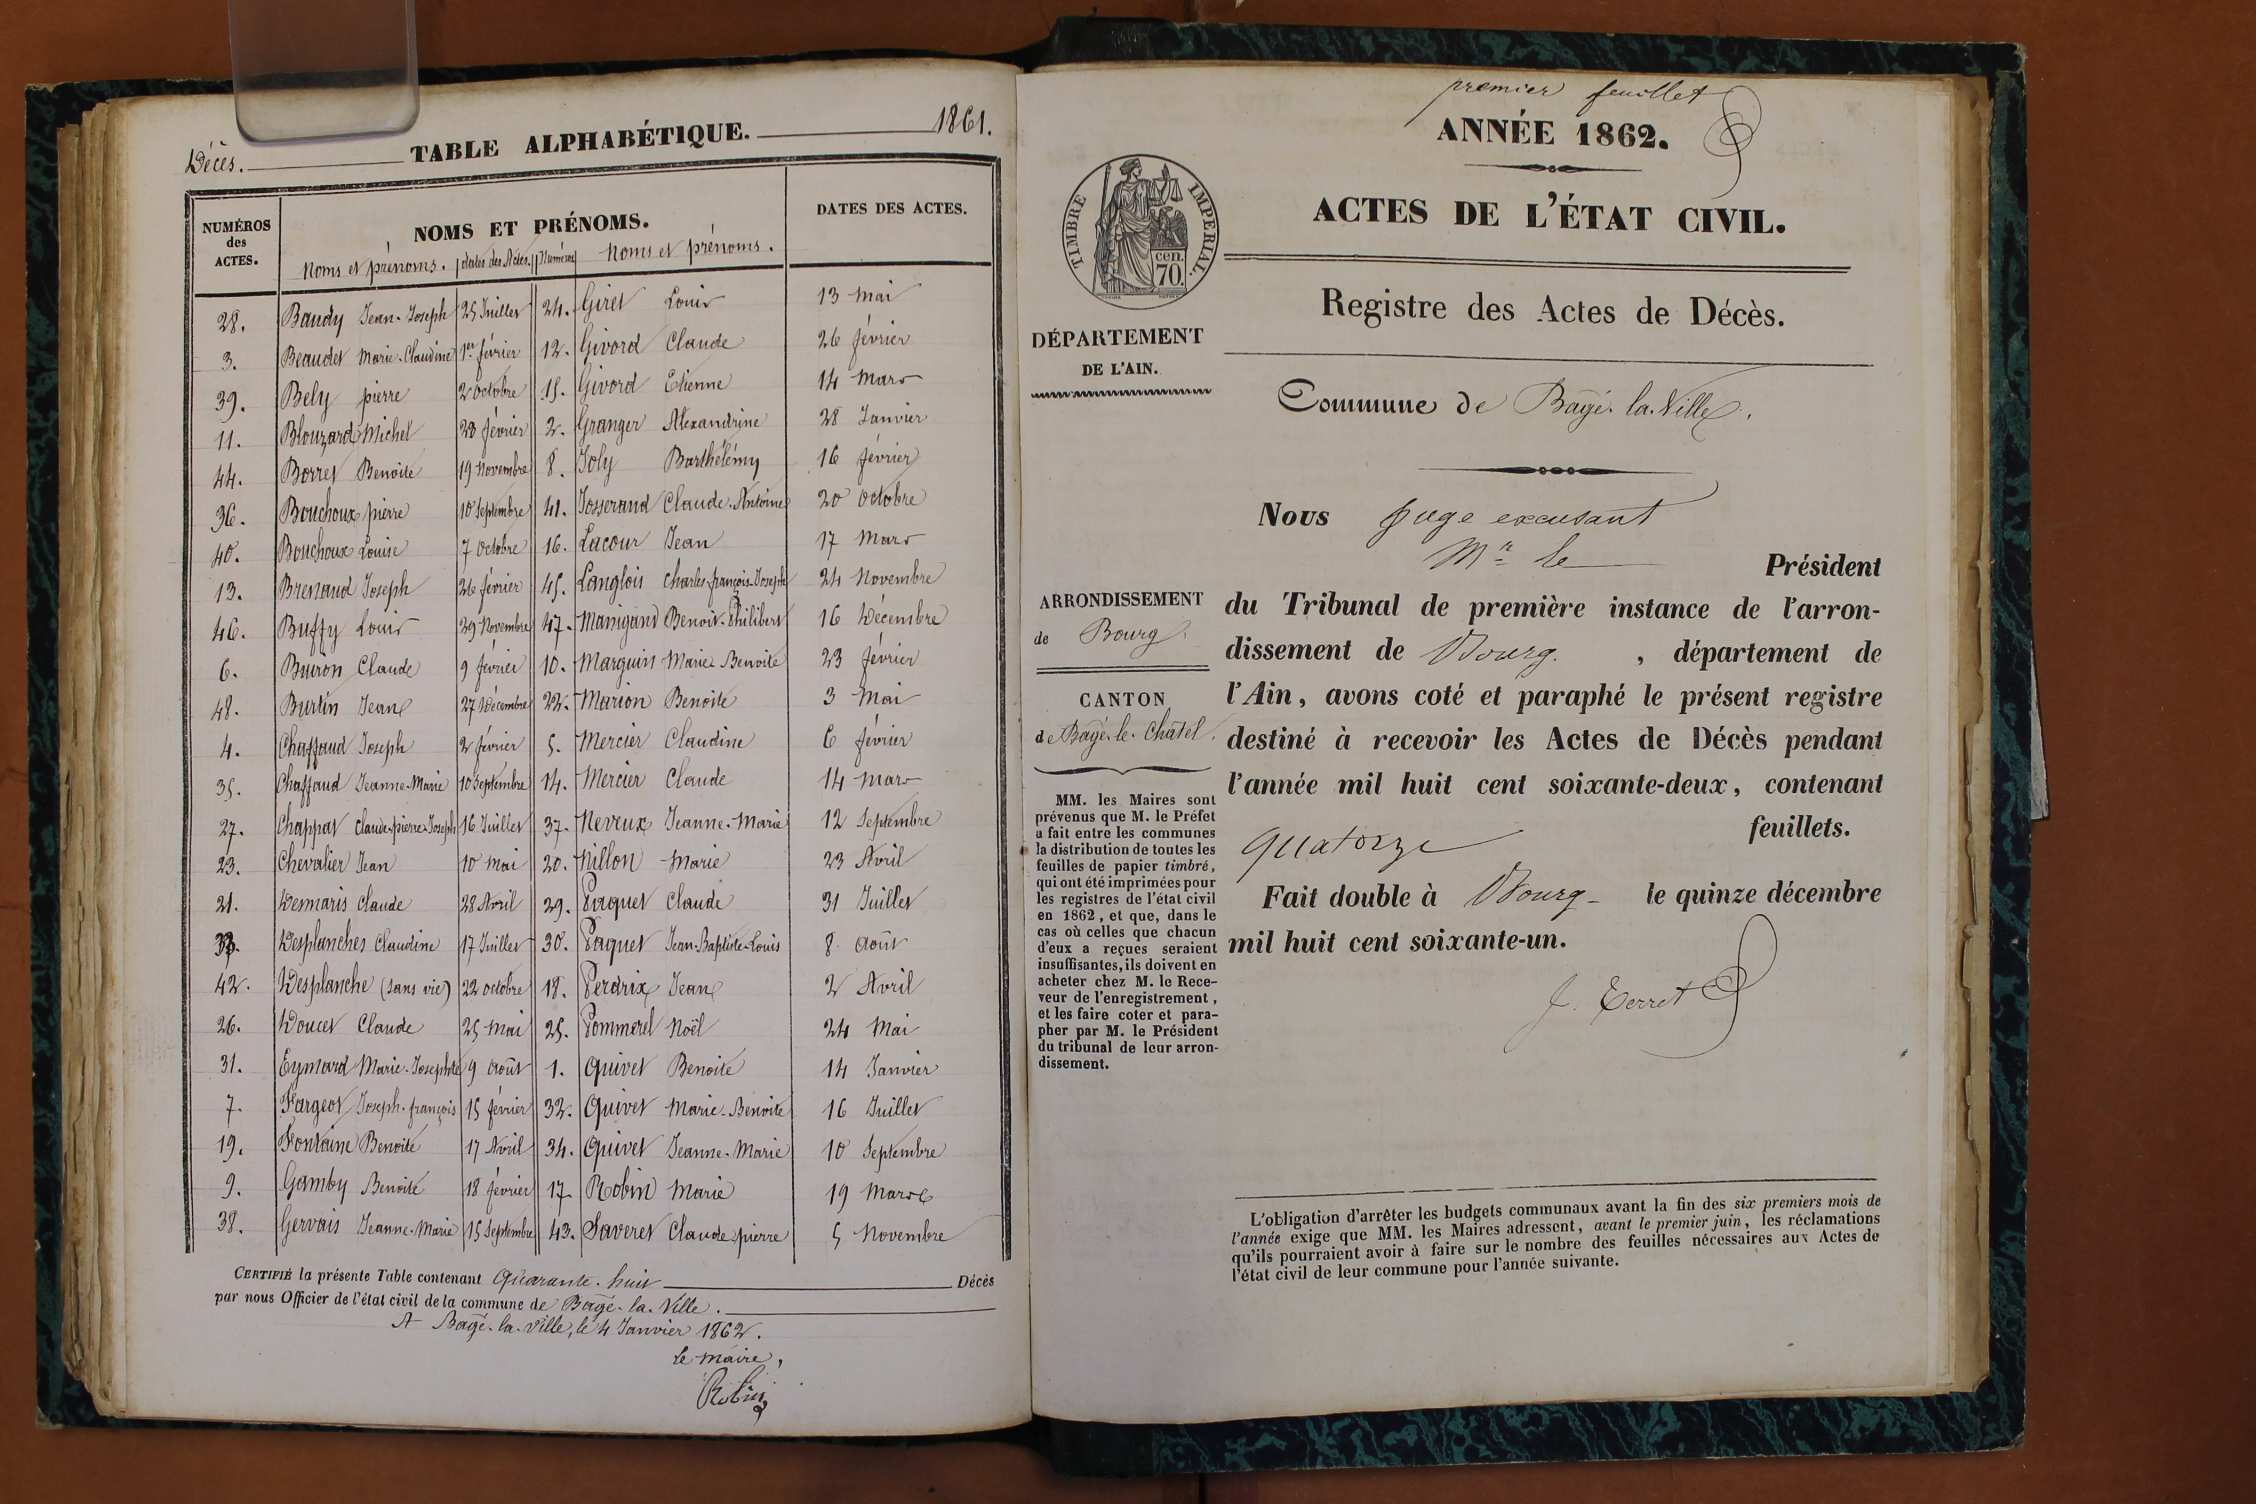 Décès. TABLE ALPHABÉTIQUE. 1861.
NUMÉROS des ACTES. NOMS ET PRÉNOMS. DATES DES ACTES.
Noms et prénoms. dates des Actes. Numéros Noms et prénoms.
28. Baudy Jean-Joseph 25 Juillet 24. Giret Louis 13 mai
3. Beaudet Marie-Claudine 1er février 12. Givord Claude 26 février
39. Bely pierre 2 octobre 15. Givord Etienne 14 mars
11. Blouzard Michel 28 février 2. Granger Alexandrine 28 Janvier
44. Borret Benoite 19 Novembre 8. Joly Barthélémy 16 février
36. Bouchoux pierre 10 Septembre 41. Josserand Claude-Antoine 20 octobre
40. Bouchoux Louise 7 octobre 16. Lacour Jean 17 mars
13. Brenaud Joseph 26 février 45. Langlois Charles-françois-Joseph 24 Novembre
46. Buffy Louis 29 Novembre 47. Manigand Benoit-Philibert 16 Décembre
6. Buron Claude 9 février 10. Marguin Marie Benoite 23 février
48. Burtin Jean 27 Décembre 22. Marion Benoite 3 Mai
4. Chaffaud Joseph 2 février 5. Mercier Claudine 6 février
35. Chaffaud Jeanne-Marie 10 Septembre 14. Mercier Claude 14 mars
27. Chappat Claude-pierre-Joseph 16 Juillet 37. Neveux Jeanne-Marie 12 Septembre
23. Chevalier Jean 10 mai 20. Nillon Marie 23 Avril
21. Desmaris Claude 28 Avril 29. Paquet Claude 31 Juillet
33. Desplanches Claudine 17 Juillet 30. Paquet Jean-Baptiste-Louis 8 Août
42. Desplanche (sans vie) 22 octobre 18. Perdrix Jean 2 Avril
26. Doucet Claude 25 mai 25. Pommerel Noël 24 Mai
31. Eymard Marie-Josephte 9 août 1. Quivet Benoite 14 Janvier
7. Fargeot Joseph-françois 15 février 32. Quivet Marie-Benoite 16 Juillet
19. Fontaine Benoite 17 Avril 34. Quivet Jeanne-Marie 10 Septembre
9. Gamby Benoite 18 février 17. Robin Marie 19 Mars
38. Gervais Jeanne-Marie 15 Septembre 43. Saveret Claude pierre 5 Novembre
CERTIFIÉ la présente Table contenant Quarante-huit Décès
par nous Officier de l'état civil de la commune de Bagé-la-Ville.
A Bagé-la-Ville, le 4 Janvier 1862.
Le maire,
Robin
premier feuillet
ANNÉE 1862.
ACTES DE L'ÉTAT CIVIL.
TIMBRE IMPÉRIAL.
cen.
70.
Registre des Actes de Décès.
DÉPARTEMENT
DE L'AIN.
Commune de Bagé-la-Ville.
Nous juge excusant
Mr le Président
du Tribunal de première instance de l'arron-
dissement de Bourg. , département de
l'Ain, avons coté et paraphé le présent registre
destiné à recevoir les Actes de Décès pendant
l'année mil huit cent soixante-deux, contenant
quatorze feuillets.
Fait double à Bourg le quinze décembre
mil huit cent soixante-un.
J. Terret
ARRONDISSEMENT
de Bourg.
CANTON
de Bagé-le-Châtel.
MM. les Maires sont
prévenus que M. le Préfet
a fait entre les communes
la distribution de toutes les
feuilles de papier timbré,
qui ont été imprimées pour
les registres de l'état civil
en 1862, et que, dans le
cas où celles que chacun
d'eux a reçues seraient
insuffisantes, ils doivent en
acheter chez M. le Rece-
veur de l'enregistrement,
et les faire coter et para-
pher par M. le Président
du tribunal de leur arron-
dissement.
L'obligation d'arrêter les budgets communaux avant la fin des six premiers mois de
l'année exige que MM. les Maires adressent, avant le premier juin, les réclamations
qu'ils pourraient avoir à faire sur le nombre des feuilles nécessaires aux Actes de
l'état civil de leur commune pour l'année suivante.